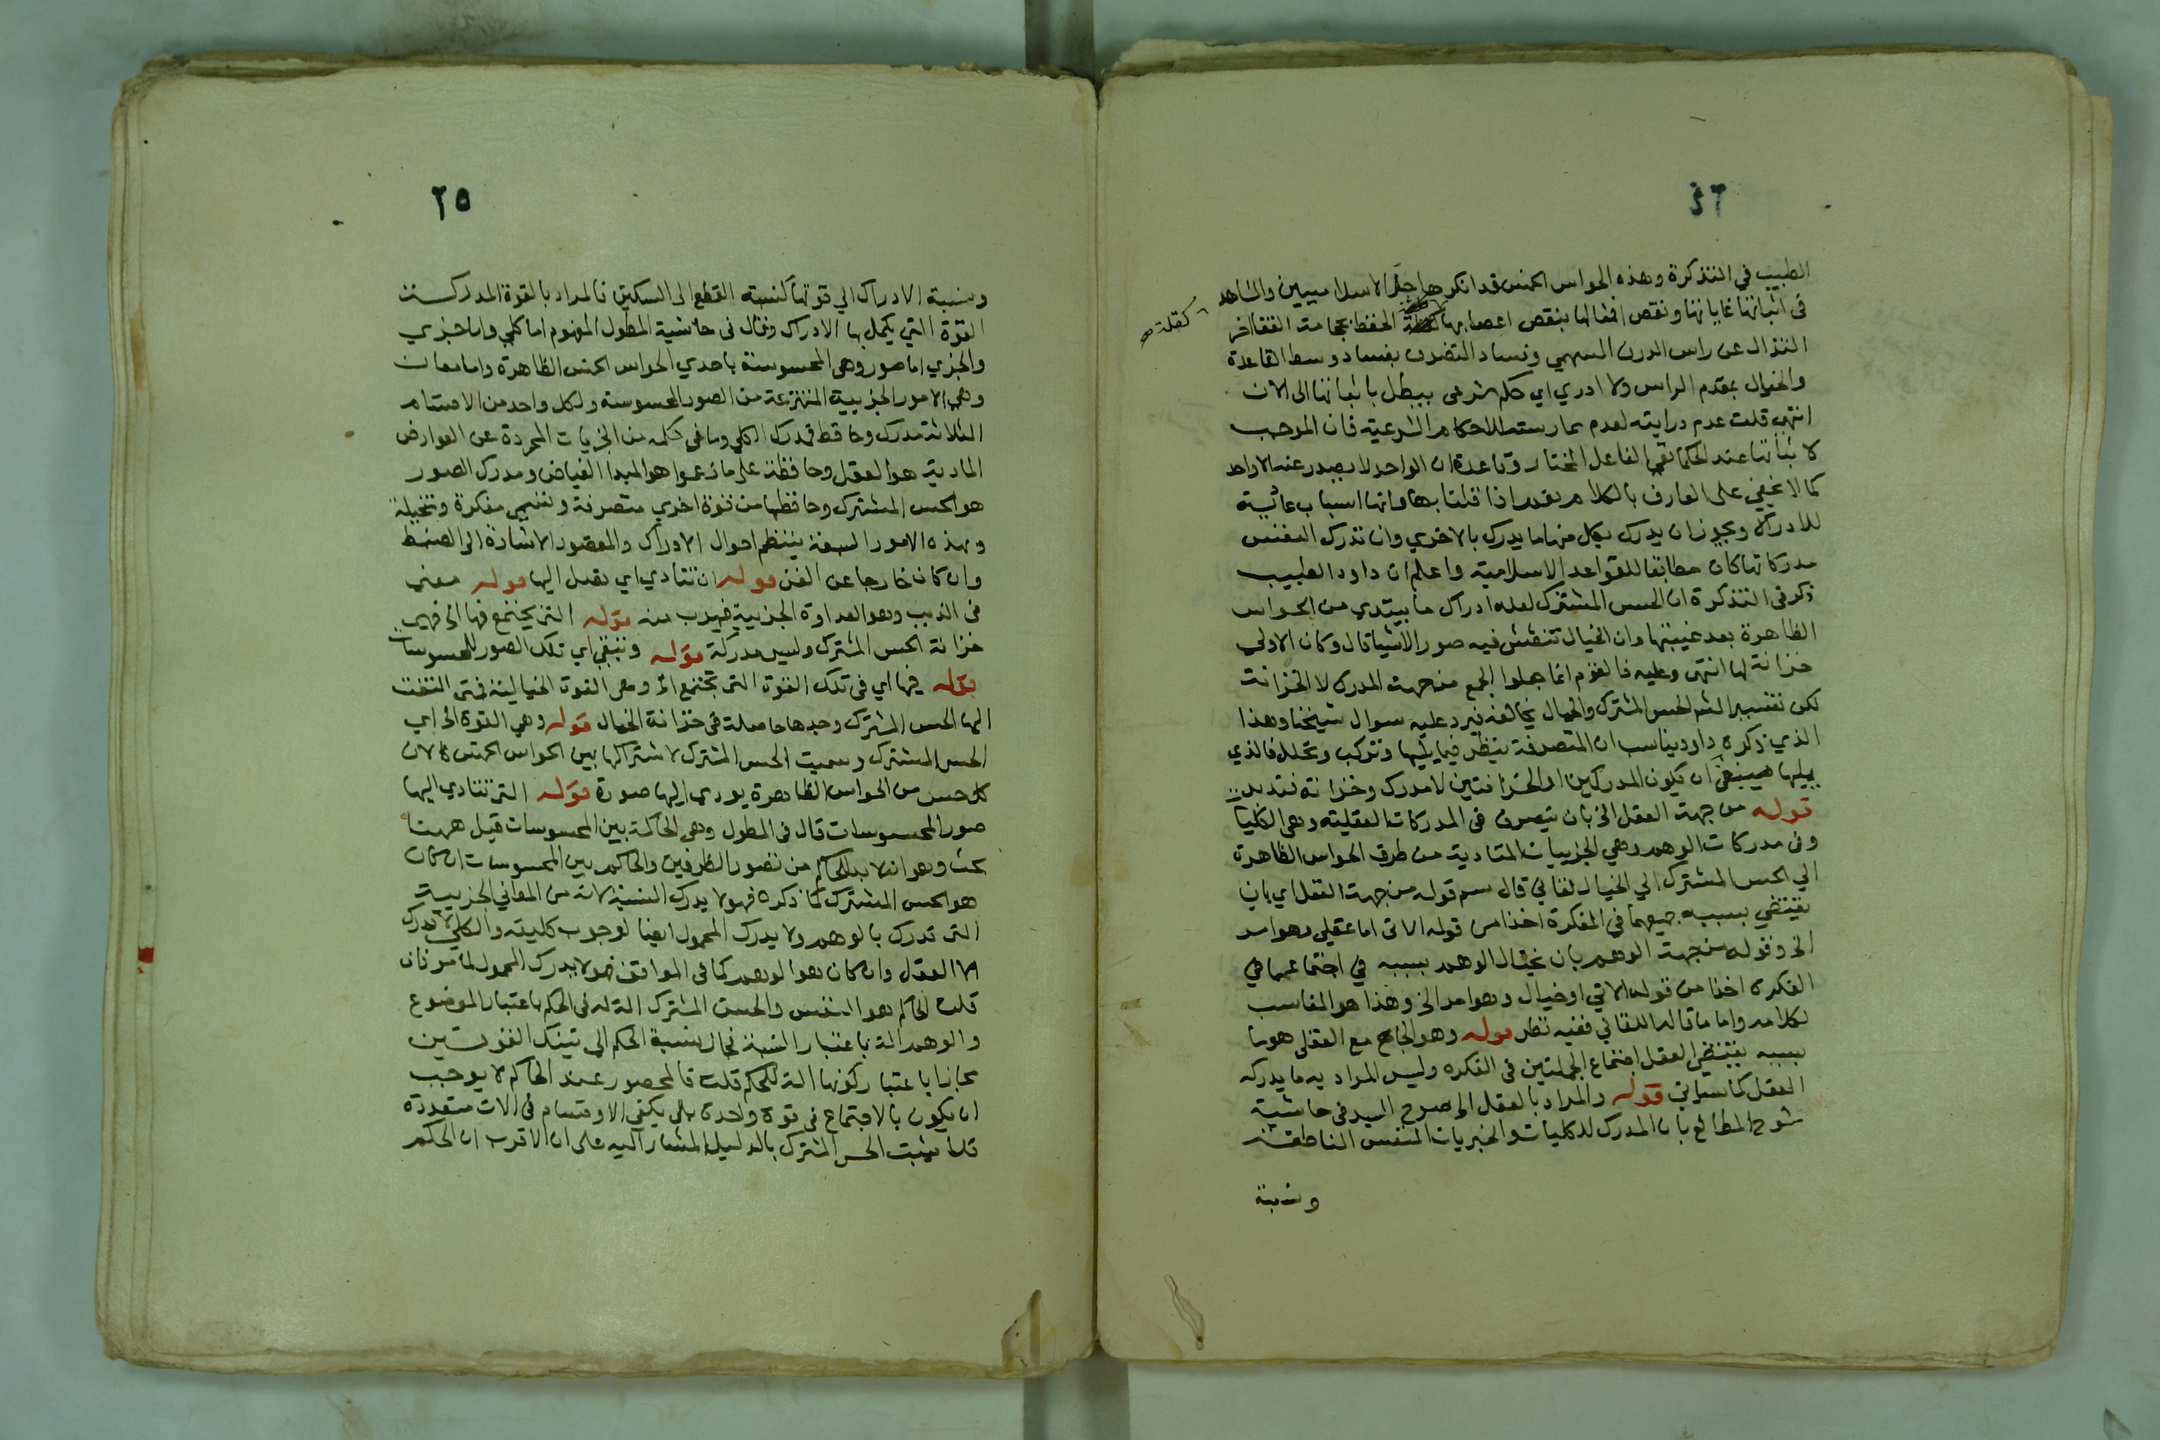 ٢٤
الطبيب في التذكرة وهذه الحواس الخمس قد انكرها جل الاسلاميين والشاهد
في اثباتها غاياتها ونقص افعالها بنقص اعصابها الحفظ بحجامة القفا اخر
كقلة صح
النزال عن راس الدرن السهمي وفساد التصرف بفساد وسط القاعدة
والخيال بمقدم الراس ولا ادري اي حكم شرعي يبطل باثباتها الى الان
انتهى قلت عدم درايته لعدم ممارسته للاحكام الشرعية فان الموجب
لاثباتها عند الحكما نفي الفاعل المختار وقاعدة ان الواحد لا يصدر عنه الا واحد
كما لا يخفى على العارف بالكلام نعم اذا قلنا بها وانها اسباب عادية
للادراك ويجوز ان يدرك بكل منها ما يدرك بالاخرى وان تدرك النفس
مدركاتها كان مطابقا للقواعد الاسلامية واعلم ان داود الطبيب
ذكر في التذكرة ان الحس المشترك لعله ادراك ما يبتدي من الحواس
الظاهرة بعد غيبتها وان الخيال تنتقش فيه صور الاشيا قال وكان الاولى
خزانة لها انتهى وعليه فالقوم انما جعلوا الجمع من جهة المدرك لا الخزانة
لكن تفسير الشم الحس المشترك والخيال يخالفه فيرد عليه سوال شيخنا وهذا
الذي ذكره داود يناسب ان المتصرفة ينظر فيما يليها وتركب وتحلل فالذي
يليها فينبغي ان يكون المدركين او الخزانتين لا مدرك وخزانة فتدبر
قوله من جهة العقل الخ بان يتصرف في المدركات العقلية وهي الكليات
وفي مدركات الوهم وهي الجزييات المتادية من طرق الحواس الظاهرة
الى الحس المشترك الى الخيال لقاني قال سم قوله من جهة العقل اي بان
يقتضي بسببه جمعهما في المفكرة اخذا من قوله الاتي اما عقلي وهو امر
الخ وقوله من جهة الوهم بان يحتال الوهم بسببه في اجتماعهما في
الفكرة اخذا من قوله الاتي او خيال وهو امر الخ وهذا هو المناسب
لكلامه واما ما قاله اللقاني ففيه نظر قوله وهو الجامع مع العقلي هو ما
بسببه يقتضي العقل اجتماع الجملتين في الفكرة وليس المراد به ما يدركه
العقل كما سياتي قوله والمراد بالعقل الخ صرح السيد في حاشية
شرح المطالع بان المدرك للكليات والجزييات النفس الناطقة
ونسبة
٢٥
ونسبة الادراك الى قوتها كنسبة القطع الى السكين فالمراد بالقوة المدركة
القوة التي يكمل بها الادراك وقال في حاشية المطول المفهوم اما كلي واما جزي
والجزي اما صور وهي المحسوسة باحدي الحواس الخمس الظاهرة واما معان
وهي الامور الجزيية المنتزعة من الصور المحسوسة ولكل واحد من الاقسام
الثلاثة مدرك وحافظ فمدرك الكلي وما في حكمه من الجزيات المجردة عن العوارض
المادية هو العقل وحافظه على ما زعموا هو المبدا الفياض ومدرك الصور
هو الحس المشترك وحافظها من قوة اخري متصرفة وتسمي مفكرة ومتخيلة
وبهذه الامور السبعة ينتظم احوال الادراك والمقصور الاشارة الى الضبط
وان كان خارجا عن الفن قوله ان تتادي اي تصل اليها قوله معنى
في الذيب وهو العداوة الجزيية فيهرب منه قوله التي يجتمع فيها الخ فهي
خزانة الحس المشترك وليس مدركة قوله وتبقي اي تلك الصور للمحسوسات
قوله فيها اي في تلك القوة التي تجتمع الخ وهي القوة الخيالية فمتى التفت
اليها الحس المشترك وجدها حاصلة في خزانة الخيال قوله وهي القوة الخ اي
الحس المشترك وسميت الحس المشترك لاشتراكها بين الحواس الخمس ولان
كل حس من الحواس الظاهرة يودي اليها صورة قوله التي تتادي اليها
صور المحسوسات قال في المطول وهي الحاكمة بين المحسوسات قيل ههنا
بحث وهو انه لا بد للحاكم من تصور الطرفين والحاكم بين المحسوسات ان كان
هو الحس المشترك كما ذكره فهو لا يدرك النسبة لانه من المعاني الجزيية
التي تدرك بالوهم ولا يدرك المحمول ايضا لوجوب كليته والكلي لا يدركه
الا العقل وان كان هو الوهم كما في المواقف فهو لا يدرك المحمول لما مر فان
قلت الحاكم هو النفس والحس المشترك الة له في الحكم باعتبار الموضوع
والوهم الة باعتبار النسبة فحال نسبة الحكم الى تينك القوتين
مجازا باعتبار كونها الة للحكم قلت فالمحصور عند الحاكم لا يوجب
ان يكون بالاجتماع في قوة واحدة بل يكفي الارتسام في الات متعددة
فلا يثبت الحس المشترك بالدليل المشار اليه على ان الاقرب ان الحكم